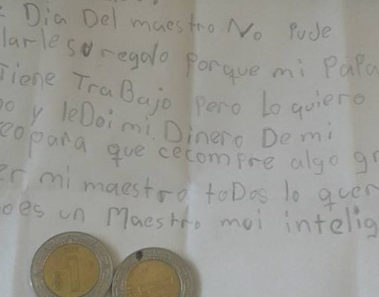 Dia Del maestro No Pude
darle su regalo Porque mi Papa
Tiene TraBajo Pero Lo quiero
y leDoi mi Dinero De mi
para que cecompre algo
mi maestro toDos lo
es un Maestro mui intelig